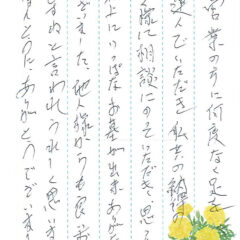 営業の方に何度なく足を
運んでいただき私共の納得の
様に相談にのっていただき、思っ
上にりっぱなお墓が出来ありが
ございました。他人様からも良い
すねと言われうれしく思いま
とうに、ありがとうございます